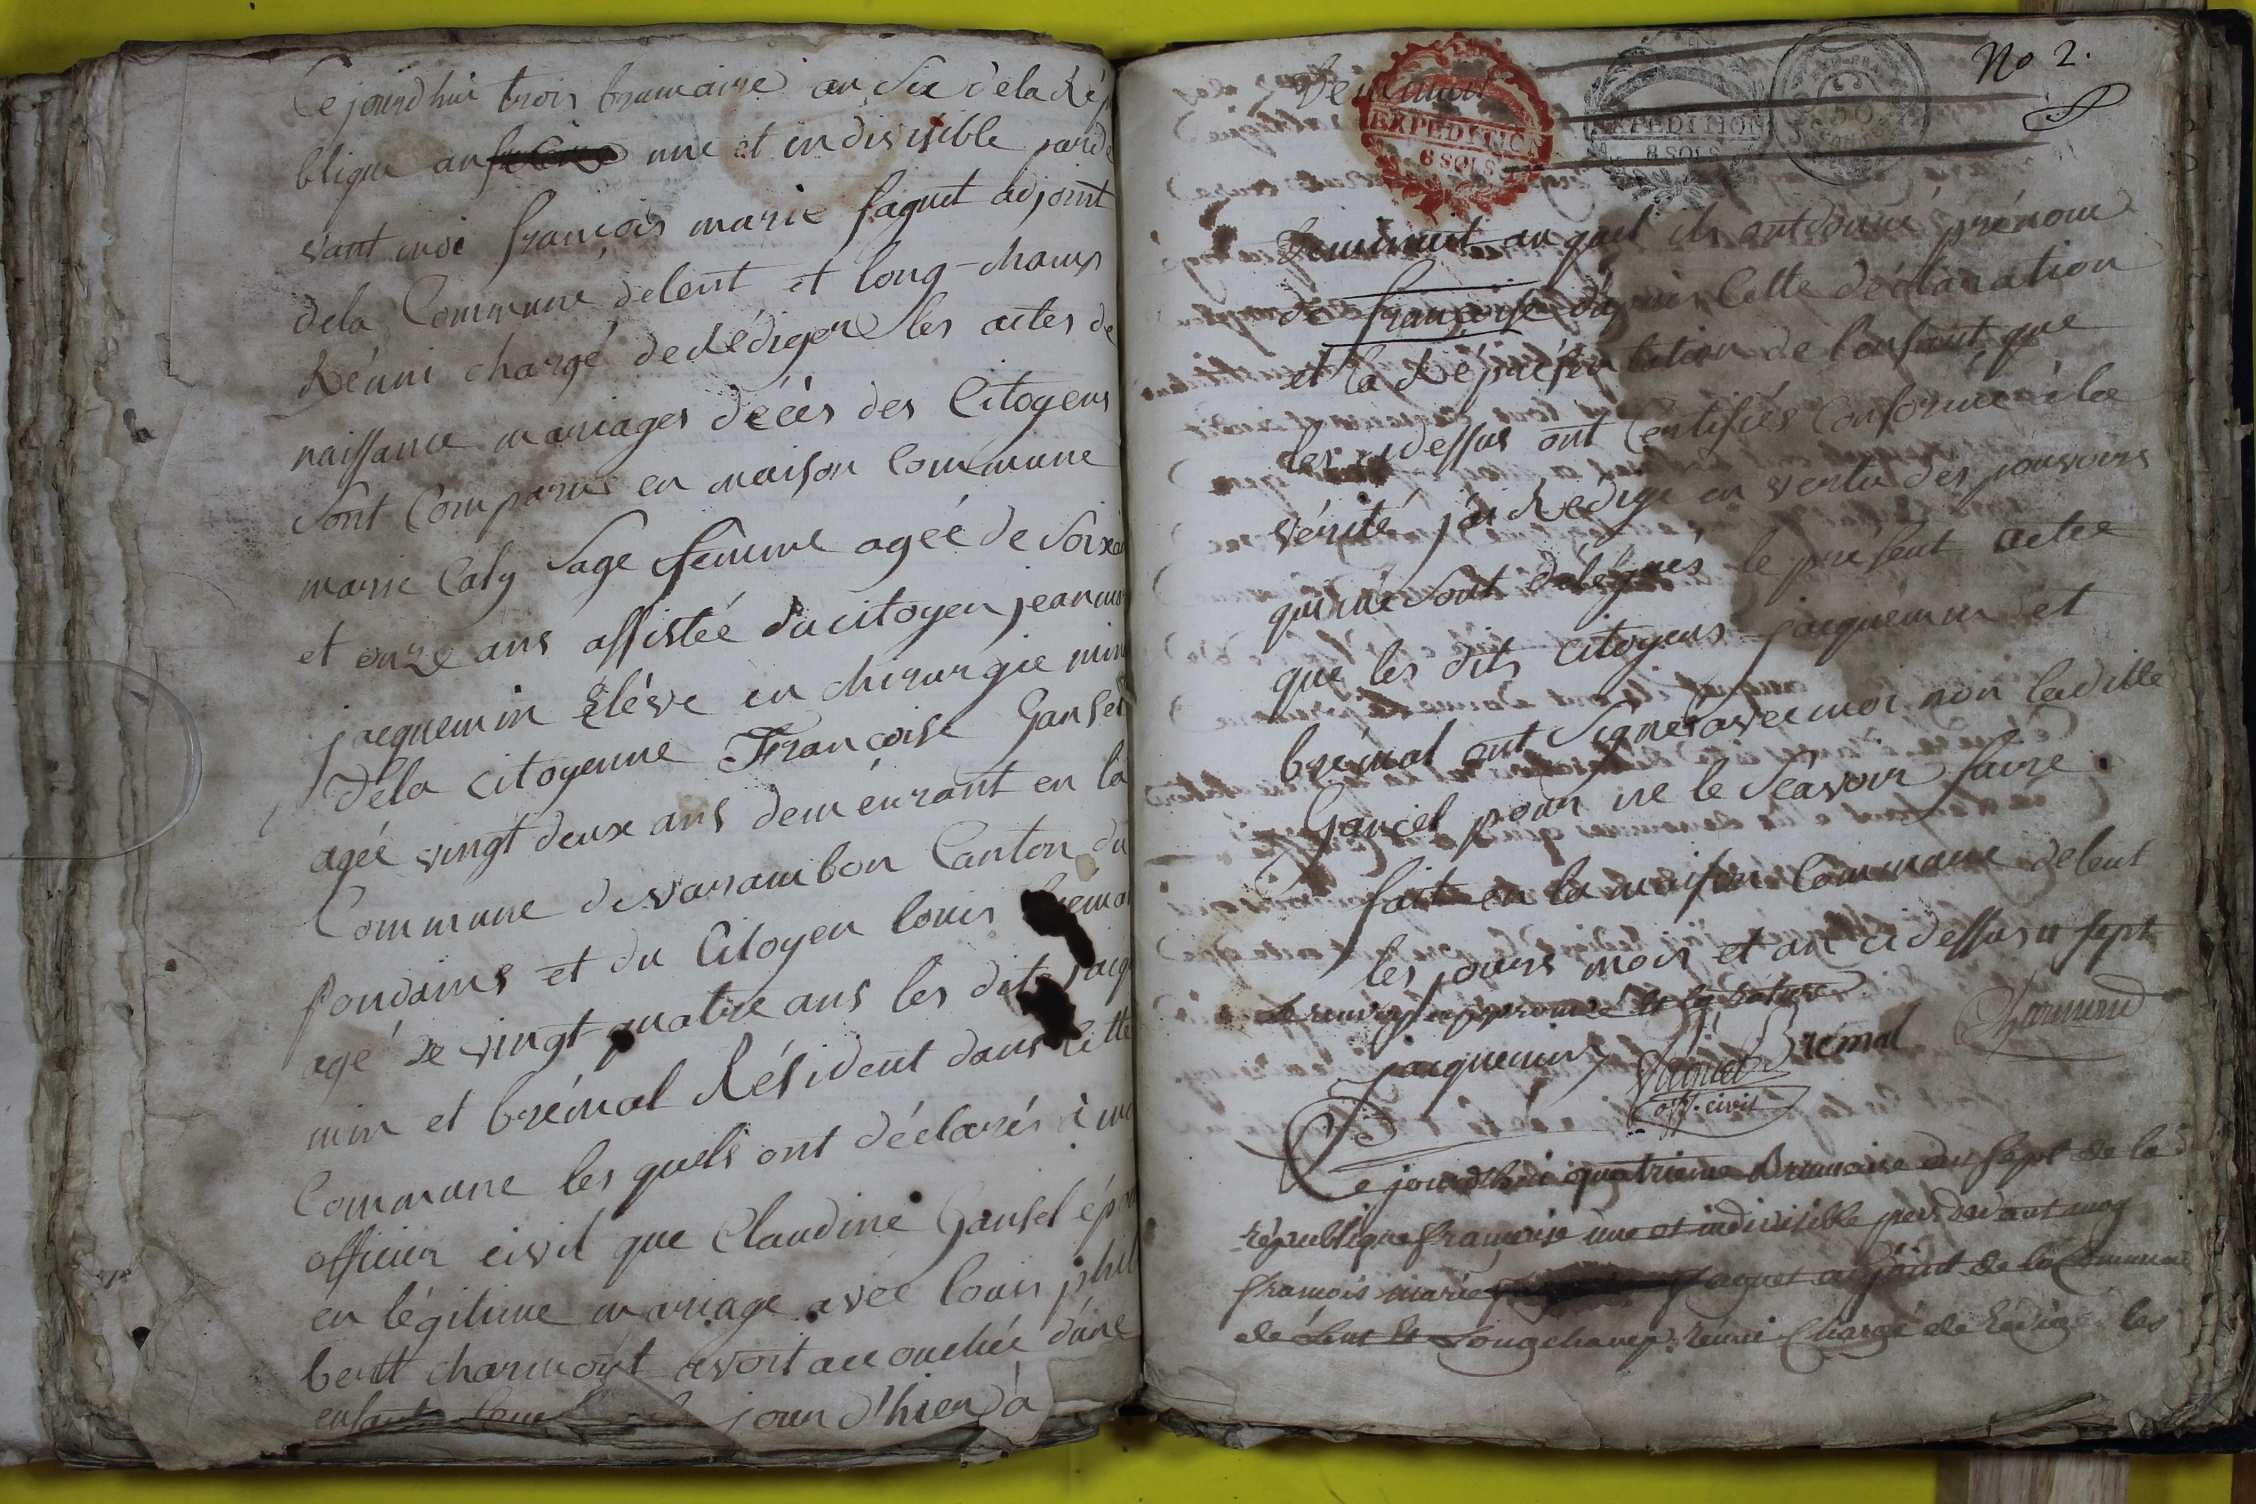 Ce jourd'hui trois brumaire an Six de la Rép
blique an une et indivisible parde
vant moi françois marie faguet adjoint
dela Commune delent et long-champ
Réuni chargé de Rédiger les actes de
naissance mariages décès des Citoyens
Sont Comparus en maison Commune
marie Caty Sage femme agée de Soixa
et onze ans assistée du citoyen jean
jacquemin Elève en chirurgie min
dela citoyenne Françoise Gansel
agée vingt deux ans demeurant en la
Commune de varambon Canton du
pondains et du Citoyen louis brémal
agé de vingt quatre ans les dits jacq
min et brémal Résident dans Cette
Commune les quels ont déclarés à mo
officier civil que Claudine Gansel ép
en légitime mariage avec louis phil
bertt charmont avoit accouchée d'une
enfant jour d'hier à
No 2.
EXPEDITION
6 SOLS
EXPEDITION
8 SOLS
50
de minuit au quel ils ont donné prénom
de françoise d'après Cette déclaration
et la Réprésentation de l'enfant que
les cidessus ont Certifiés Conforme à la
vérité j'ai Redigé en vertu des pouvoirs
qui me Sont délégués le présent acte
que les dits citoyens jacquemin et
brémal ont Signés avec moi non ladille
Gancel pour ne le Sçavoir faire.
fait en la maison Commune delent
les jours mois et an cidessus sept
jacquemin Brémal Charmond
off. civil
Ce jourd'hui quatrieme Brumaire an Sept de la
république française une et indivisible par devant moy
françois marie faguet adjoint de la Commune
de Lent et Longchamp réuni Chargé de Rédigé les